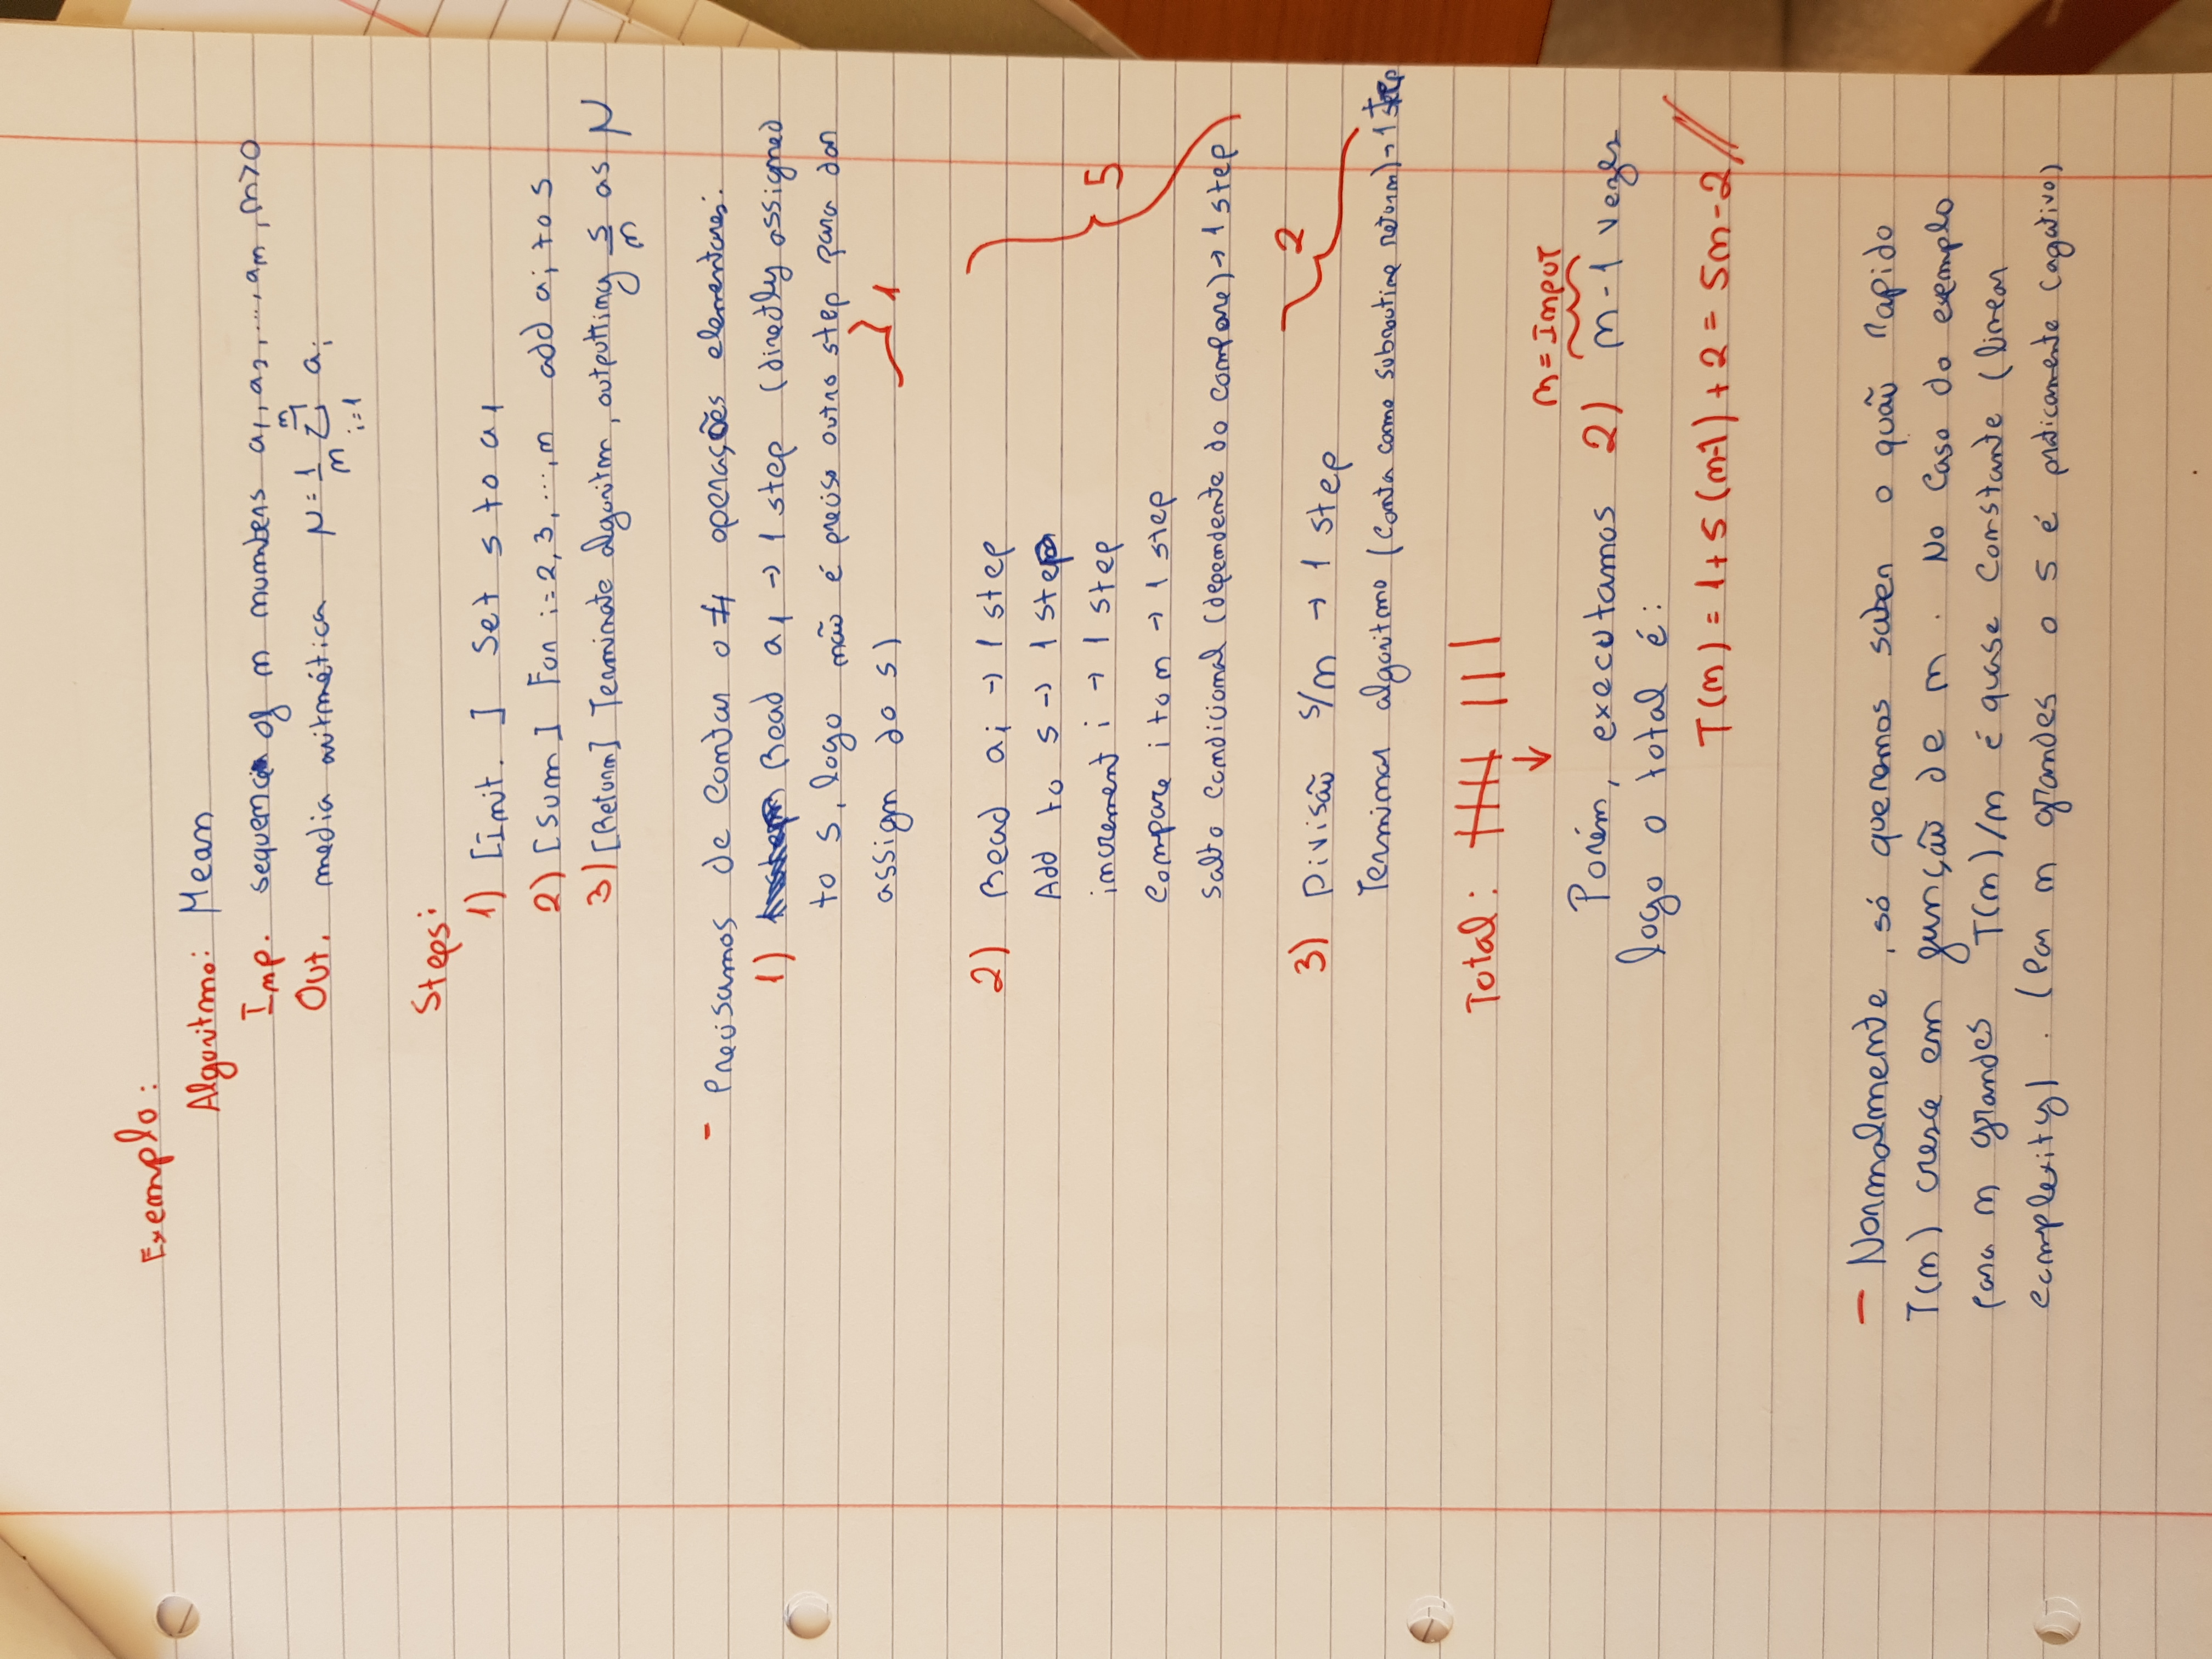 Exemplo:
Algoritmo: Mean
Inp. sequence of n numbers a1, a2, ..., an, n>0
Out. media aritmética μ = 1/n Σ_{i=1}^{n} ai
Steps:
1) [Init. ] Set s to a1
2) [Sum] For i=2,3,...,n add ai to s
3) [Return] Terminate algoritm, outputting s/n as μ
- Precisamos de contar o # operações elementares:
1) Read a1 → 1 step (directly assigned
to s, logo não é preciso outro step para dar
assign do s) } 1
2) Read ai → 1 step
Add to s → 1 step
increment i → 1 step
} 5
Compare i to n → 1 step
salto condicional (dependente do compare) → 1 step
3) Divisão s/n → 1 step } 2
Terminar algoritmo (conta como subroutine return) → 1 step
Total: 𝍸 |||
↓
n = Input
Porém, executamos 2) n-1 vezes
logo o total é:
T(n) = 1+5(n-1)+2 = 5n-2//
- Normalmente, só queremos saber o quão rapido
T(n) cresce em função de n. No caso do exemplo
para n grandes T(n)/n é quase constante (linear
complexity). (Par n grandes o 5 é praticamente cagativo)